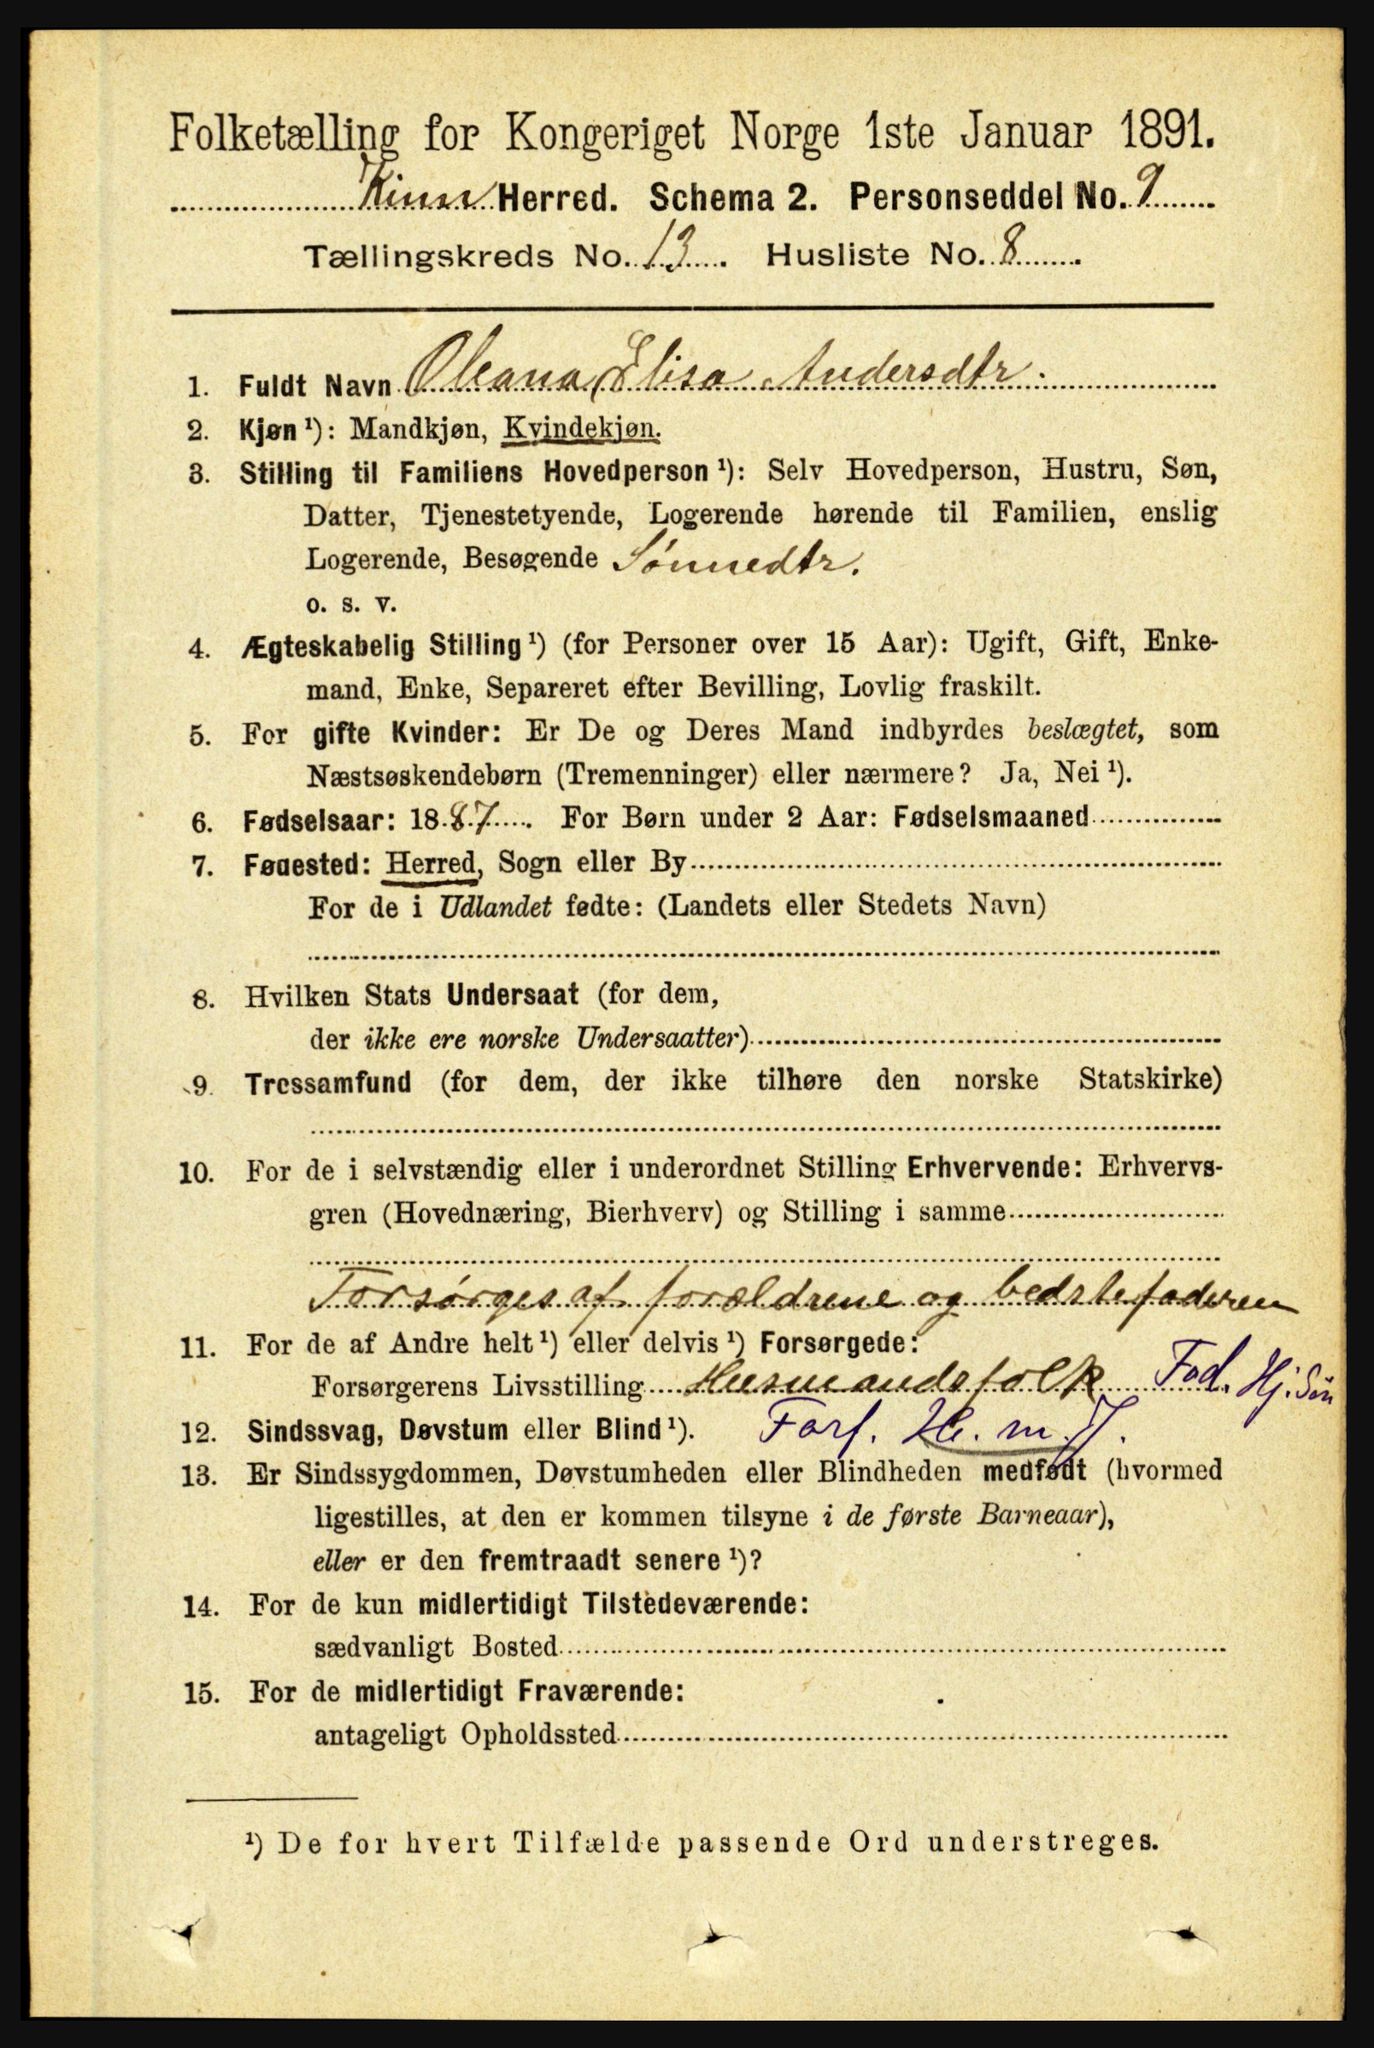 Folketælling for Kongeriget Norge 1ste Januar 1891.
Kinn Herred. Schema 2. Personseddel No. 9
Tællingskreds No. 13. Husliste No. 8
1. Fuldt Navn Oleana Elisa Andersdtr.
2. Kjøn ¹): Mandkjøn, Kvindekjøn.
3. Stilling til Familiens Hovedperson ¹): Selv Hovedperson, Hustru, Søn,
Datter, Tjenestetyende, Logerende hørende til Familien, enslig
Logerende, Besøgende Sønnedtr.
o. s. v.
4. Ægteskabelig Stilling ¹) (for Personer over 15 Aar): Ugift, Gift, Enke-
mand, Enke, Separeret efter Bevilling, Lovlig fraskilt.
5. For gifte Kvinder: Er De og Deres Mand indbyrdes beslægtet, som
Næstsøskendebørn (Tremenninger) eller nærmere? Ja, Nei ¹).
6. Fødselsaar: 1887. For Børn under 2 Aar: Fødselsmaaned
7. Føuested: Herred, Sogn eller By
For de i Udlandet fødte: (Landets eller Stedets Navn)
8. Hvilken Stats Undersaat (for dem,
der ikke ere norske Undersaatter)
9. Trcssamfund (for dem, der ikke tilhøre den norske Statskirke)
10. For de i selvstændig eller i underordnet Stilling Erhvervende: Erhvervs-
gren (Hovednæring, Bierhverv) og Stilling i samme
Forsørges af forældrene og bedstefaderen
11. For de af Andre helt ¹) eller delvis ¹) Forsørgede:
Forsørgerens Livsstilling Husmandsfolk Fad. Hj. Søn
12. Sindssvag, Døvstum eller Blind ¹). Farf. H. m. J.
13. Er Sindssygdommen, Døvstumheden eller Blindheden medfødt (hvormed
ligestilles, at den er kommen tilsyne i de første Barneaar),
eller er den fremtraadt senere ¹)?
14. For de kun midlertidigt Tilstedeværende:
sædvanligt Bosted
15. For de midlertidigt Fraværende:
antageligt Opholdssted
¹) De for hvert Tilfælde passende Ord understreges.